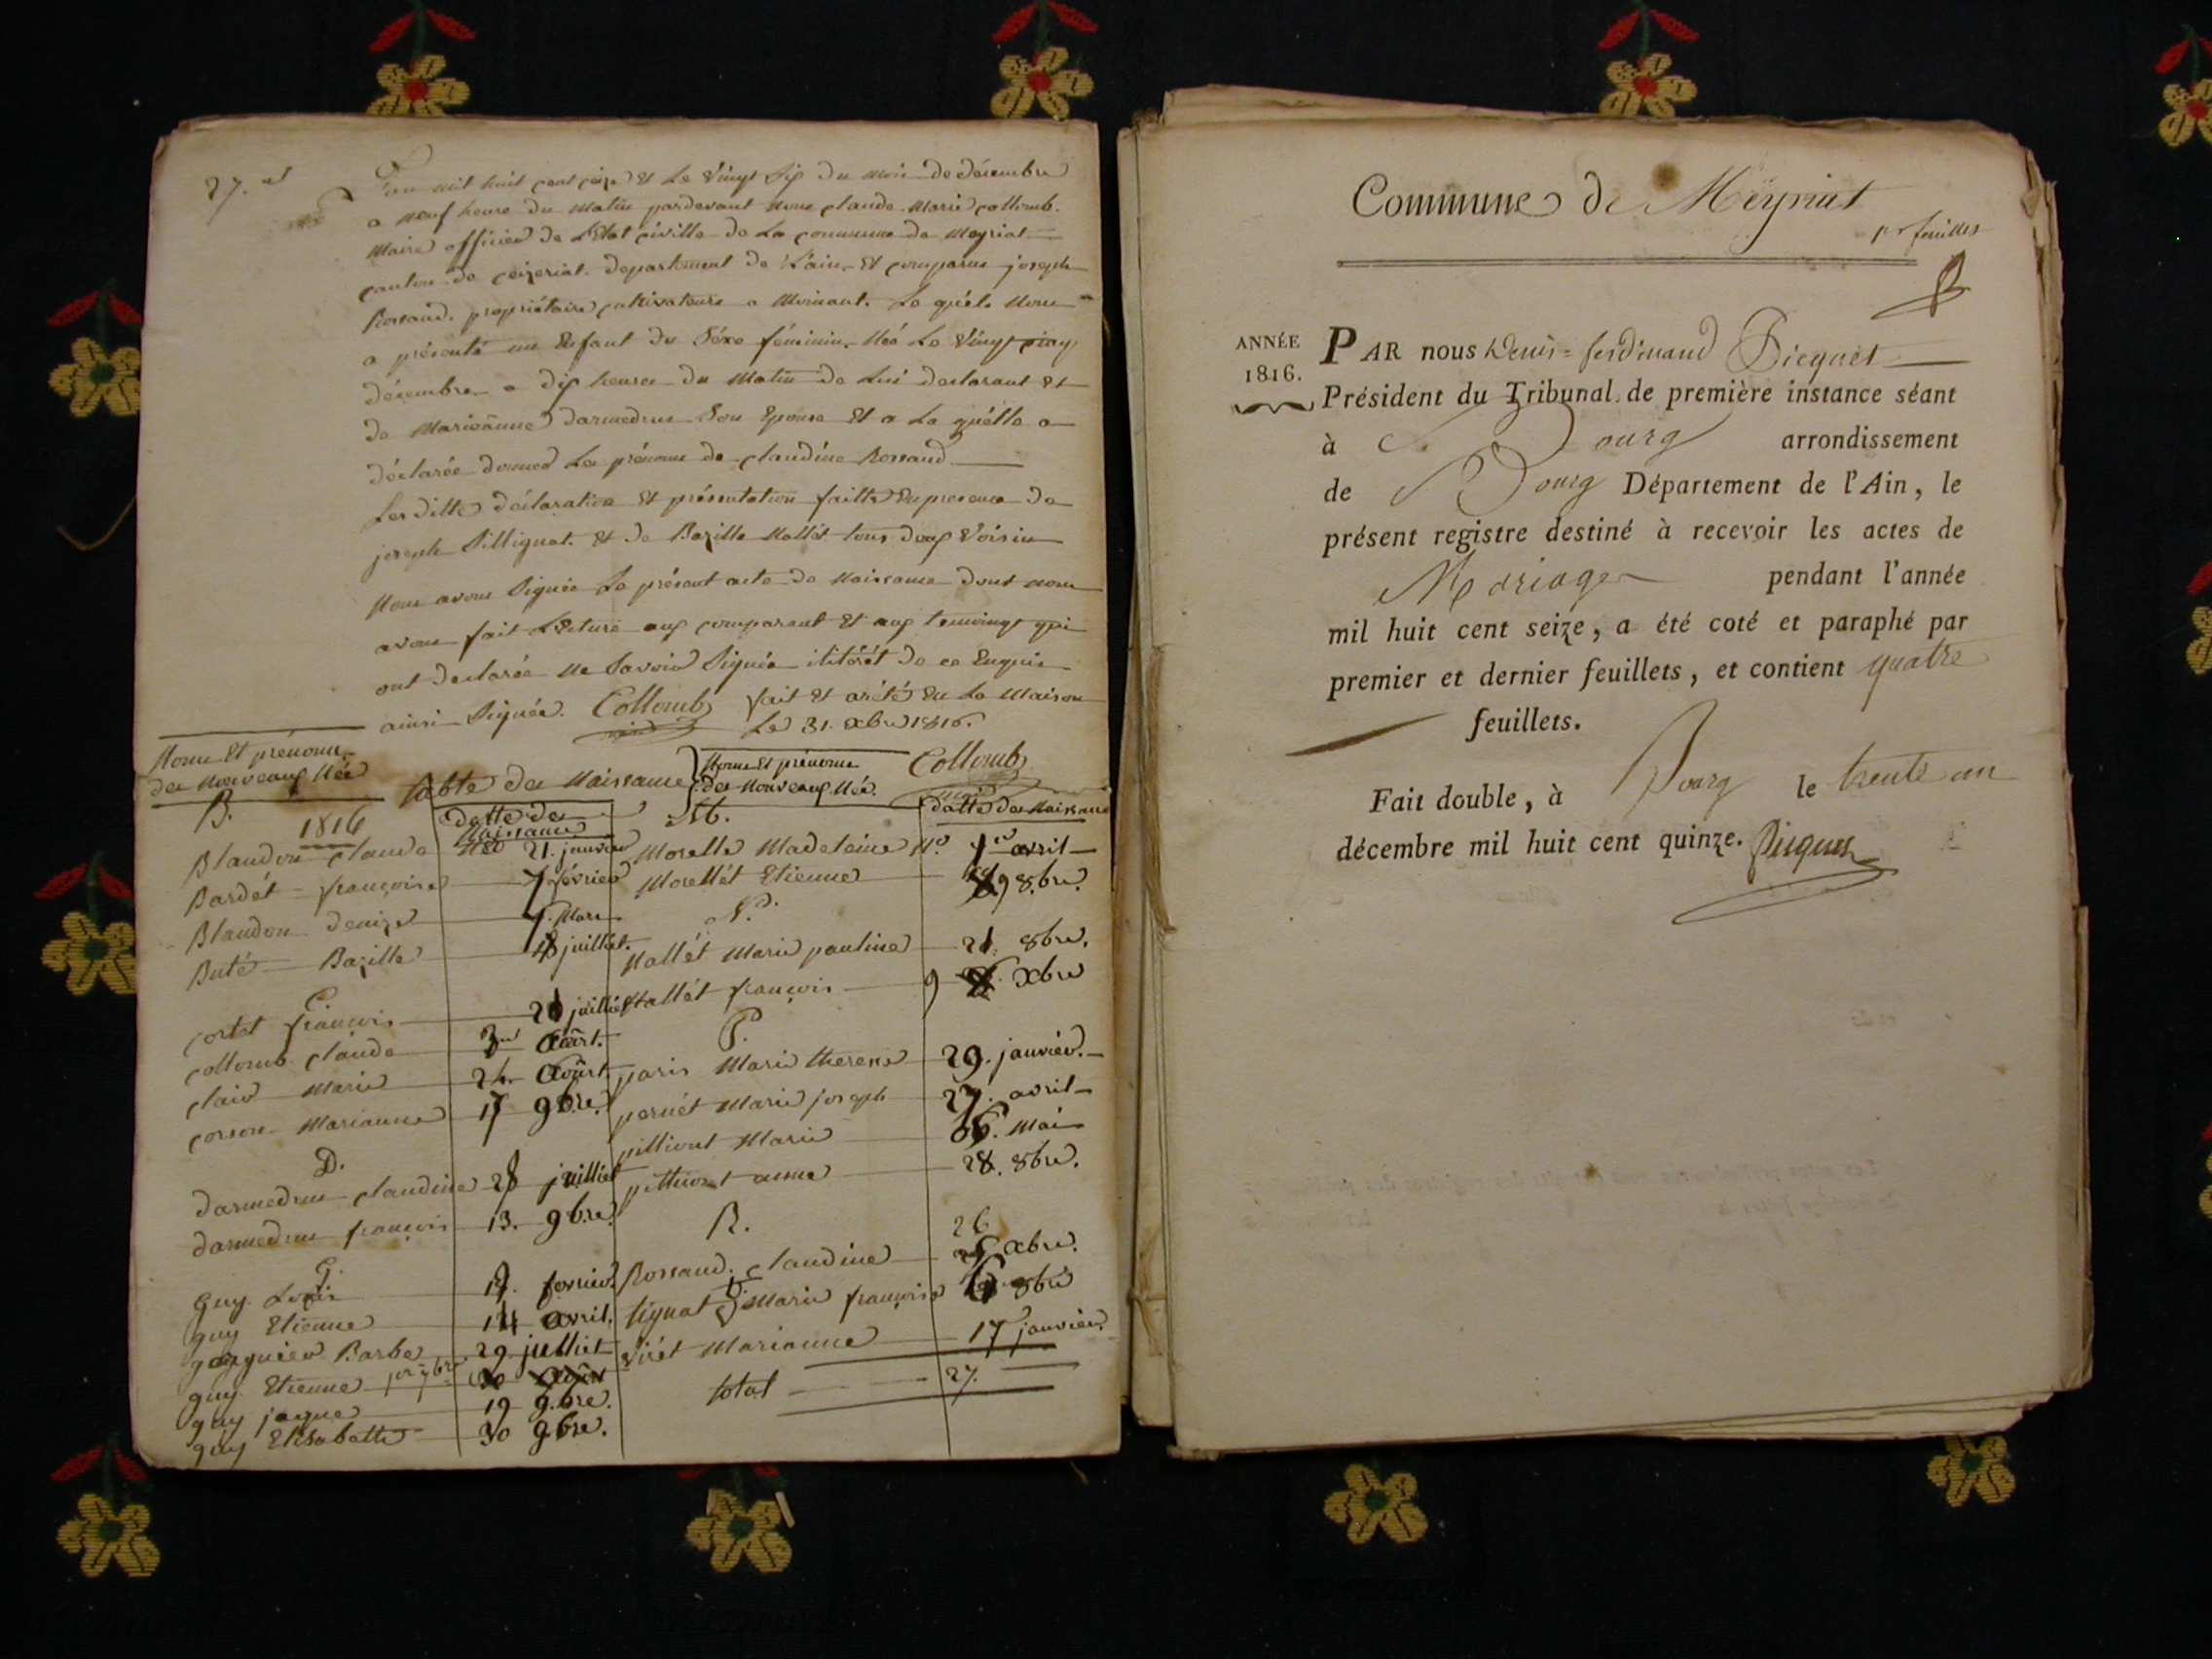 27.e
L'an mil huit cent seize et Le vingt six du mois de décembre
a neuf heure du matin pardevant nous claude marie collomb.
maire officier de L'état civille de La commune de meyriat
canton de ceizeriat. departement de L'ain. Et comparus joseph
Rossand. propriétaire cultivateure a Le quél. nous
a présenté un Enfant du séxe féminin. née Le vingt cinq
décembre a dix heures du matin de Lui declarant et
de marieanne darmedrue son Epouse Et a La quélle a
déclarée donner Les prénoms de claudine Rossand
Les ditte déclaration Et présentation faitte En presence de
joseph tillignat. et de Bazille Nallét tous deux voisin
nous avons signée Le présent acte de naissance dont nous
avons fait Lecture aux comparant Et aux temoingt qui
ont declarée ne savoir signée de ce Enquis
ainsi signée. Collomb fait et arété En La maison
Le 31. xbre 1816.
Collomb
Noms Et prénoms
des nouveaux Née
table des naissance
Noms Et prénoms
des nouveaux Née.
datte des naissance
B.
1816
datte des
naissance
M.
Blandon claude née 21. janvier
Bardét françoise 7 février
Blandon denize 7. Mars
Buté Bazille 18 juillet.
C.
cortet françois 21 juillet
collomb claude 3 Août.
clair marie 24. Août.
corson marianne 17 9bre.
D.
darmedrue claudine 28 juilliet
darmedrue françois 13. 9bre.
G.
guy Louis 19. fevrier
guy Etienne 14 avril.
garguier Barbe 29 juilliet
guy Etienne per 7bre
guy jaque 19 9.bre.
guy Elisabette 30 9bre.
Morelle Madeleine N.e 1er avril
Morellét Etienne 19 8.bre.
N.
Nallét Marie pauline 21. 8bre.
Nallét françois 9 xbre
P.
paris Marie therese 29. janvier.
pernét Marie joseph 27. avril
pilliont Marie 6. Mai
pilliont anne 28. 8bre.
R.
26
Rossand. claudine xbre.
T.
tignat Marie françoise 8bre
V.
virét Marianne 17 janvier.
total 27.
Commune de Meyriat
pr feuillet
ANNÉE
1816.
PAR nous Denis=ferdinand Picquet
Président du Tribunal de première instance séant
à Bourg arrondissement
de Bourg Département de l'Ain, le
présent registre destiné à recevoir les actes de
Mariage pendant l'année
mil huit cent seize, a été coté et paraphé par
premier et dernier feuillets, et contient quatre
feuillets.
Fait double, à Bourg le trente un
décembre mil huit cent quinze. Picquet